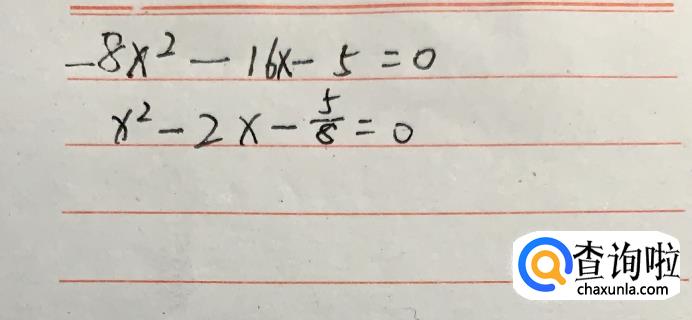 -8x² - 16x - 5 = 0
x² - 2x - 5/8 = 0
查询啦
chaxunla.com